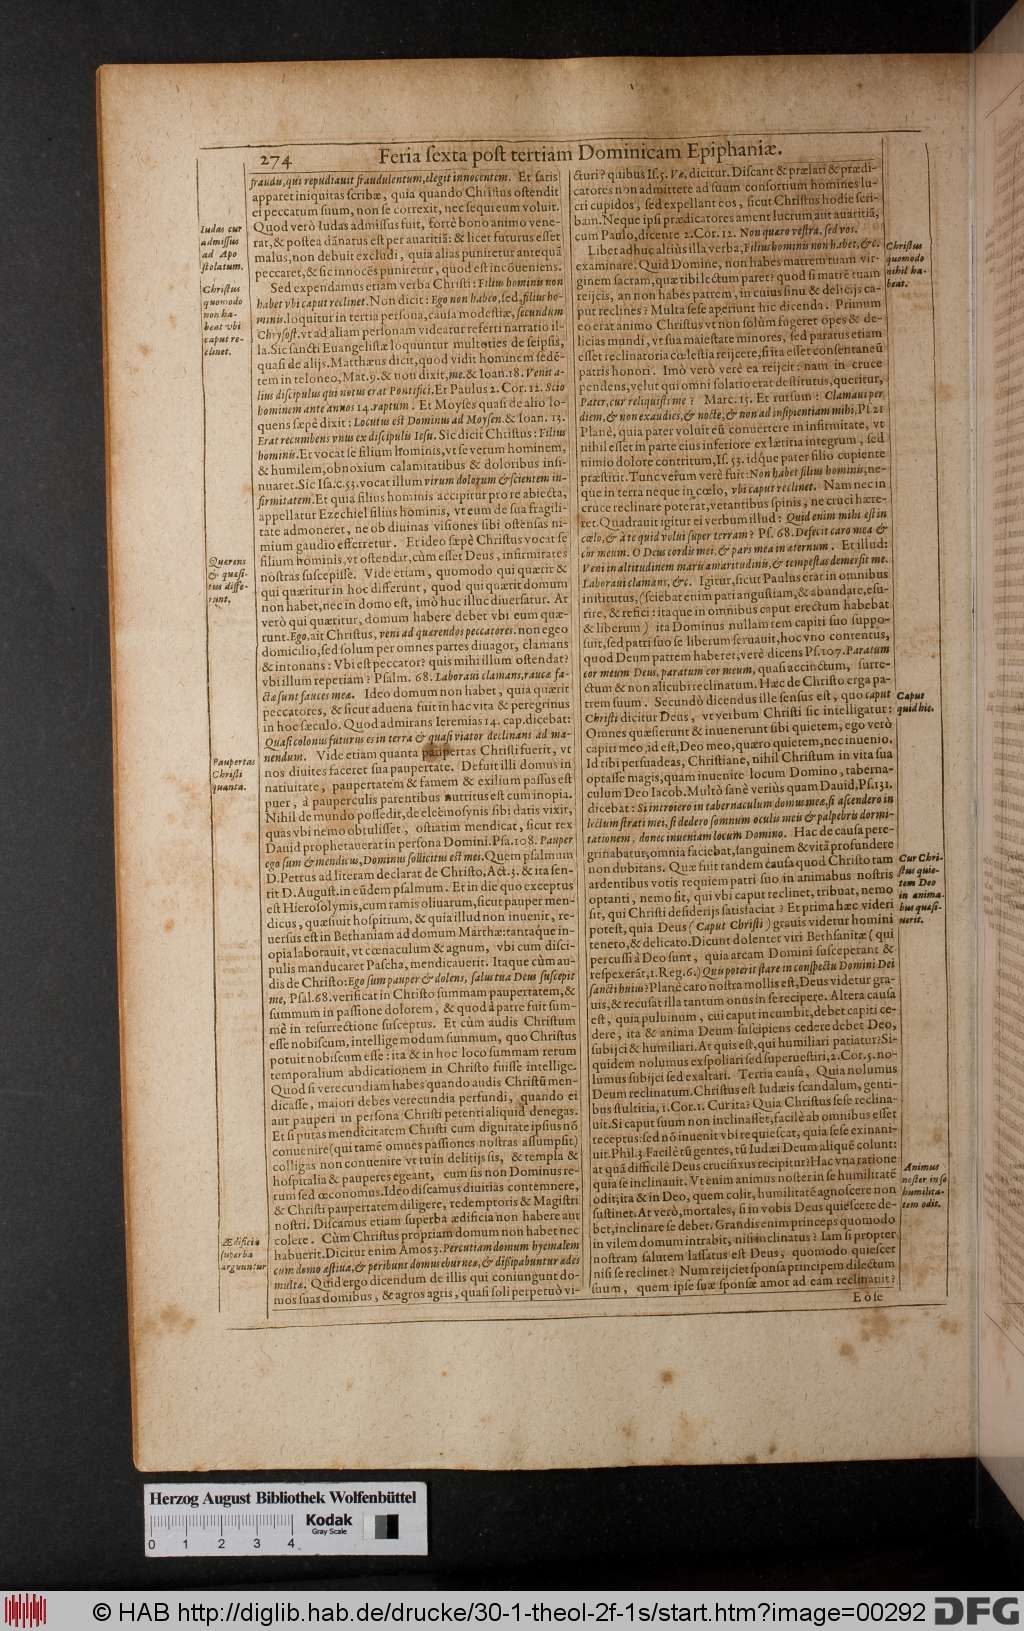 274 Feria sexta post tertiam Dominicam Epiphaniæ.
fraudu, qui repudiauit fraudulentum, elegit innocentem. Et satis
apparet iniquitas scribæ, quia quando Christus ostendit
ei peccatum suum, non se correxit, nec sequi eum voluit.
Quod verò Iudas admissus fuit, fortè bono animo vene-
rat, & postea dānatus est per auaritiā: & licet futurus esset
malus, non debuit excludi, quia alias puniretur antequā
peccaret, & sic innocēs puniretur, quod est incōueniens.
Sed expendamus etiam verba Christi: Filius hominis non
habet vbi caput reclinet. Non dicit: Ego non habeo, sed, filius ho-
minis. loquitur in tertia persona, causa modestiæ, secundum
Chrysost. vt ad aliam personam videatur referri narratio il-
la. Sic sancti Euangelistæ loquuntur multoties de seipsis,
quasi de alijs. Matthæus dicit, quod vidit hominem sedē-
tem in teloneo, Mat. 9. & non dixit, me. & Ioan. 18. Venit a-
lius discipulus qui notus erat Pontifici. Et Paulus 2. Cor. 12. Scio
hominem ante annos 14. raptum. Et Moyses quasi de alio lo-
quens sæpè dixit: Locutus est Dominus ad Moysen. & Ioan. 13.
Erat recumbens vnus ex discipulis Iesu. Sic dicit Christus: Filius
hominis. Et vocat se filium hominis, vt se verum hominem,
& humilem, obnoxium calamitatibus & doloribus insi-
nuaret. Sic Isa. c. 53. vocat illum virum dolorum & scientem in-
firmitatem. Et quia filius hominis accipitur pro re abiecta,
appellatur Ezechiel filius hominis, vt eum de sua fragili-
tate admoneret, ne ob diuinas visiones sibi ostensas ni-
mium gaudio efferretur. Et ideo sæpè Christus vocat se
filium hominis, vt ostendat, cùm esset Deus, infirmitates
nostras suscepisse. Vide etiam, quomodo qui quærit &
qui quæritur in hoc differunt, quod qui quærit domum
non habet, nec in domo est, imò huc illuc diuersatur. At
verò qui quæritur, domum habere debet vbi eum quæ-
runt. Ego, ait Christus, veni ad quærendos peccatores. non egeo
domicilio, sed solum per omnes partes diuagor, clamans
& intonans: Vbi est peccator? quis mihi illum ostendat?
vbi illum reperiam? Psalm. 68. Laboraui clamans, raucæ fa-
ctæ sunt fauces meæ. Ideo domum non habet, quia quærit
peccatores, & sicut aduena fuit in hac vita & peregrinus
in hoc sæculo. Quod admirans Ieremias 14. cap. dicebat:
Quasi colonus futurus es in terra & quasi viator declinans ad ma-
nendum. Vide etiam quanta paupertas Christi fuerit, vt
nos diuites faceret sua paupertate. Defuit illi domus in
natiuitate, paupertatem & famem & exilium passus est
puer, à pauperculis parentibus nutritus est cum inopia.
Nihil de mundo possedit, de eleēmosynis sibi datis vixit,
quas vbi nemo obtulisset, ostiatim mendicat, sicut rex
Dauid prophetauerat in persona Domini. Psa. 108. Pauper
ego sum & mendicus, Dominus sollicitus est mei. Quem psalmum
D. Petrus ad literam declarat de Christo, Act. 3. & ita sen-
tit D. August. in eūdem psalmum. Et in die quo exceptus
est Hierosolymis, cum ramis oliuarum, sicut pauper men-
dicus, quæsiuit hospitium, & quia illud non inuenit, re-
uersus est in Bethaniam ad domum Marthæ: tantaque in-
opia laborauit, vt cœnaculum & agnum, vbi cum disci-
pulis manducaret Pascha, mendicauerit. Itaque cùm au-
dis de Christo: Ego sum pauper & dolens, salus tua Deus suscepit
me, Psal. 68. verificat in Christo summam paupertatem, &
summum in passione dolorem, & quod à patre fuit sum-
mè in resurrectione susceptus. Et cùm audis Christum
esse nobiscum, intellige modum summum, quo Christus
potuit nobiscum esse: ita & in hoc loco summam rerum
temporalium abdicationem in Christo fuisse intellige.
Quod si verecundiam habes quando audis Christū men-
dicasse, maiori debes verecundia perfundi, quando ei
aut pauperi in persona Christi petenti aliquid denegas.
Et si putas mendicitatem Christi cum dignitate ipsius nō
conuenire (qui tamē omnes passiones nostras assumpsit)
colligas non conuenire vt tu in delitijs sis, & templa &
hospitalia & pauperes egeant, cum sis non Dominus re-
rum sed œconomus. Ideo discamus diuitias contemnere,
& Christi paupertatem diligere, redemptoris & Magistri
nostri. Discamus etiam superba ædificia non habere aut
colere. Cùm Christus propriam domum non habet nec
habuerit. Dicitur enim Amos 3. Percutiam domum hyemalem
cum domo æstiua, & peribunt domus eburneæ, & dissipabuntur ædes
multæ. Quid ergo dicendum de illis qui coniungunt do-
mos suas domibus, & agros agris, quasi soli perpetuò vi-
Iudas cur
admissus
ad Apo
stolatum.
Christus
quomodo
non ha-
beat vbi
caput re-
clinet.
Quærens
& quæsi-
tus diffe-
runt.
Paupertas
Christi
quanta.
Ædificia
superba
arguuntur
cturi? quibus Is. 5. Væ, dicitur. Discant & prælati & prædi-
catores non admittere ad suum consortium homines lu-
cri cupidos, sed expellant eos, sicut Christus hodie scri-
bam. Neque ipsi prædicatores ament lucrum aut auaritiā,
cum Paulo, dicente 2. Cor. 12. Non quæro vestra, sed vos.
Libet adhuc altiùs illa verba, Filius hominis non habet, &c.
examinare. Quid Domine, non habes matrem tuam vir-
ginem sacram, quæ tibi lectum paret? quod si matrē tuam
reijcis, an non habes patrem, in cuius sinu & delicijs ca-
put reclines? Multa sese aperiunt hîc dicenda. Primum
eo erat animo Christus vt non solùm fugeret opes & de-
licias mundi, vt sua maiestate minores, sed paratus etiam
esset reclinatoria cœlestia reijcere, si ita esset consentaneū
patris honori. Imò verò verè ea reijcit: nam in cruce
pendens, velut qui omni solatio erat destitutus, queritur,
Pater, cur reliquisti me? Marc. 15. Et rursum: Clamaui per
diem, & non exaudies, & nocte, & non ad insipientiam mihi, Ps. 21
Planè, quia pater voluit eū conuertere in infirmitate, vt
nihil esset in parte eius inferiore ex lætitia integrum, sed
nimio dolore contritum, Is. 53. idque pater filio cupiente
præstitit. Tunc verum verè fuit: Non habet filius hominis, ne-
que in terra neque in cœlo, vbi caput reclinet. Nam nec in
cruce reclinare poterat, vetantibus spinis, ne cruci hære-
ret. Quadrauit igitur ei verbum illud: Quid enim mihi est in
cœlo, & à te quid volui super terram? Ps. 68. Defecit caro mea &
cor meum. O Deus cordis mei, & pars mea in æternum. Et illud:
Veni in altitudinem maris amaritudinis, & tempestas demersit me.
Laboraui clamans, &c. Igitur, sicut Paulus erat in omnibus
institutus, (sciebat enim pati angustiam, & abundare, esu-
rire, & refici: itaque in omnibus caput erectum habebat
& liberum) ita Dominus nullam rem capiti suo suppo-
suit, sed patri suo se liberum seruauit, hoc vno contentus,
quod Deum patrem haberet, verè dicens Ps. 107. Paratum
cor meum Deus, paratum cor meum, quasi accinctum, surre-
ctum & non alicubi reclinatum. Hæc de Christo erga pa-
trem suum. Secundò dicendus ille sensus est, quo caput
Christi dicitur Deus, vt verbum Christi sic intelligatur:
Omnes quæsierunt & inuenerunt sibi quietem, ego verò
capiti meo, id est, Deo meo, quæro quietem, nec inuenio.
Id tibi persuadeas, Christiane, nihil Christum in vita sua
optasse magis, quam inuenire locum Domino, taberna-
culum Deo Iacob. Multò sanè veriùs quam Dauid, Ps. 131.
dicebat: Si introiero in tabernaculum domus meæ, si ascendero in
lectum strati mei, si dedero somnum oculis meis & palpebris dormi-
tationem, donec inueniam locum Domino. Hac de causa pere-
grinabatur, omnia faciebat, sanguinem & vitā profundere
non dubitans. Quæ fuit tandem causa quod Christo tam
ardentibus votis requiem patri suo in animabus nostris
optanti, nemo sit, qui vbi caput reclinet, tribuat, nemo
sit, qui Christi desiderijs satisfaciat? Et prima hæc videri
potest, quia Deus (Caput Christi) grauis videtur homini
tenero, & delicato. Dicunt dolenter viri Bethsanitæ (qui
percussi à Deo sunt, quia arcam Domini susceperant &
respexerāt, 1. Reg. 6.) Quis poterit stare in conspectu Domini Dei
sancti huius? Planè caro nostra mollis est, Deus videtur gra-
uis, & recusat illa tantum onus in se recipere. Altera causa
est, quia puluinum, cui caput incumbit, debet capiti ce-
dere, ita & anima Deum suscipiens cedere debet Deo,
subijci & humiliari. At quis est, qui humiliari patiatur? Si-
quidem nolumus exspoliari sed superuestiri, 2. Cor. 5. no-
lumus subijci sed exaltari. Tertia causa, Quia nolumus
Deum reclinatum. Christus est Iudæis scandalum, genti-
bus stultitia, 1. Cor. 1. Cur ita? Quia Christus sese reclina-
uit. Si caput suum non inclinasset, facilè ab omnibus esset
receptus: sed nō inuenit vbi requiescat, quia sese exinani-
uit. Phil. 3. Facilè tū gentes, tū Iudæi Deum aliquē colunt:
at quā difficilè Deus crucifixus recipitur? Hac vna ratione
quia se inclinauit. Vt enim animus noster in se humilitatē
odit; ita & in Deo, quem colit, humilitatē agnoscere non
sustinet. At verò, mortales, si in vobis Deus quiescere de-
bet, inclinare se debet. Grandis enim princeps quomodo
in vilem domum intrabit, nisi inclinatus? Iam si propter
nostram salutem lassatus est Deus, quomodo quiescet
nisi se reclinet? Num reijciet sponsa principem dilectum
suum, quem ipse suæ sponsæ amor ad eam reclinauit?
E ò se
Christus
quomodo
nihil ha-
beat.
Caput
quid hic.
Cur Chri-
stus quie-
tem Deo
in anima-
bus quæsi-
uerit.
Animus
noster in se
humilita-
tem odit.
Herzog August Bibliothek Wolfenbüttel
Kodak
Gray Scale
0 1 2 3 4
© HAB http://diglib.hab.de/drucke/30-1-theol-2f-1s/start.htm?image=00292 DFG